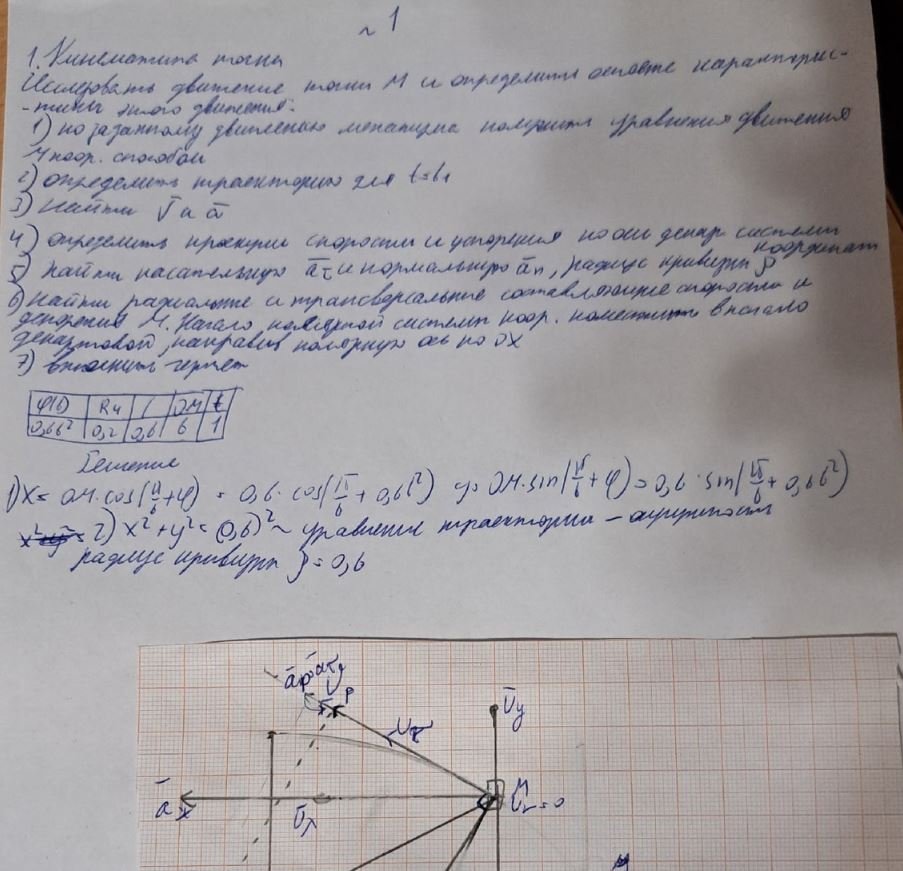 ~ 1
1. Кинематика точки
Исследовать движение точки М и определить основные характерис-
-тики этого движения:
1) по заданному движению механизма получить уравнения движения
М коор. способом
2) определить траекторию для t=t₁
3) найти v̄ и ā
4) определить проекции скорости и ускорения на оси декар. системы
координат
5) найти касательную āτ и нормальную āₙ, радиус кривизны ρ
6) найти радиальные и трансверсальные составляющие скорости и
ускорения М. Начало полярной системы коор. поместить в начало
декартовой, направив полярную ось по OX
7) выполнить чертеж
φ(t) R₄ l OM t
0,6t² 0,2 0,6 6 1
Решение
1) x = OM·cos(π/6+φ) = 0,6·cos(π/6 + 0,6t²) y = OM·sin(π/6+φ) = 0,6·sin(π/6 + 0,6t²)
2) x²+y² = (0,6)² ~ уравнения траектории – окружность
радиус кривизны ρ = 0,6
P
v̄y
M
āx
v̄x
v̄r=0